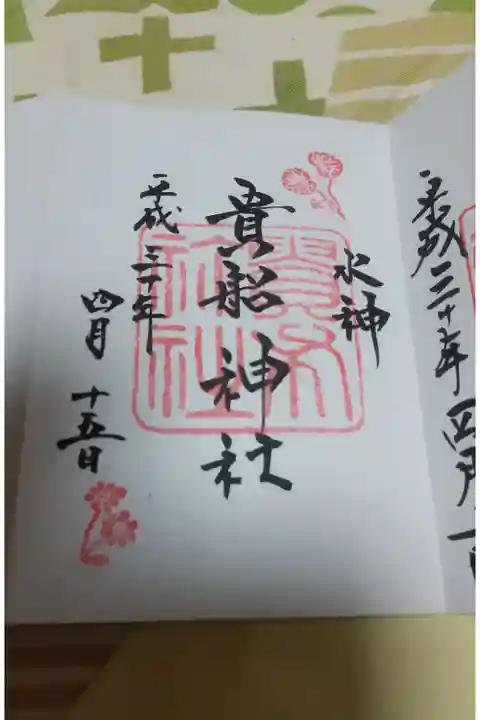 平成三十年四月
水神
貴船神社
平成三十年
四月十五日